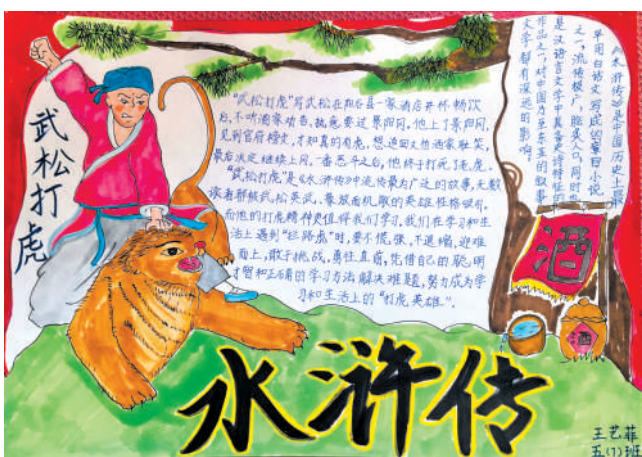 武松打虎
"武松打虎"写武松在阳谷县一家酒店开怀畅饮
后,不听酒家劝告,执意要过景阳冈,他上了景阳冈,
见到官府榜文,才知真的有虎,想退回又怕酒家耻笑,
最后决定继续上冈,一番恶斗之后,他终于打死了老虎。
"武松打虎"是《水浒传》中流传最为广泛的故事,无数
读者都被武松英武、豪放而机敏的英雄性格吸引。
而他的打虎精神更值得我们学习,我们在学习和生
活上遇到"拦路虎"时,要不慌张,不退缩,迎难
而上,敢于挑战,勇往直前,凭借自己的聪明
才智和正确的学习方法解决难题,努力成为学
习和生活上的"打虎英雄"。
《水浒传》是中国历史上最
早用白话文写成的章回小说
之一,流传极广,脍炙人口,同时
是汉语言文学中具备史诗特征的
作品之一,对中国乃至东亚的叙事
文学都有深远的影响。
酒
酒
水浒传
王艺菲
五(7)班